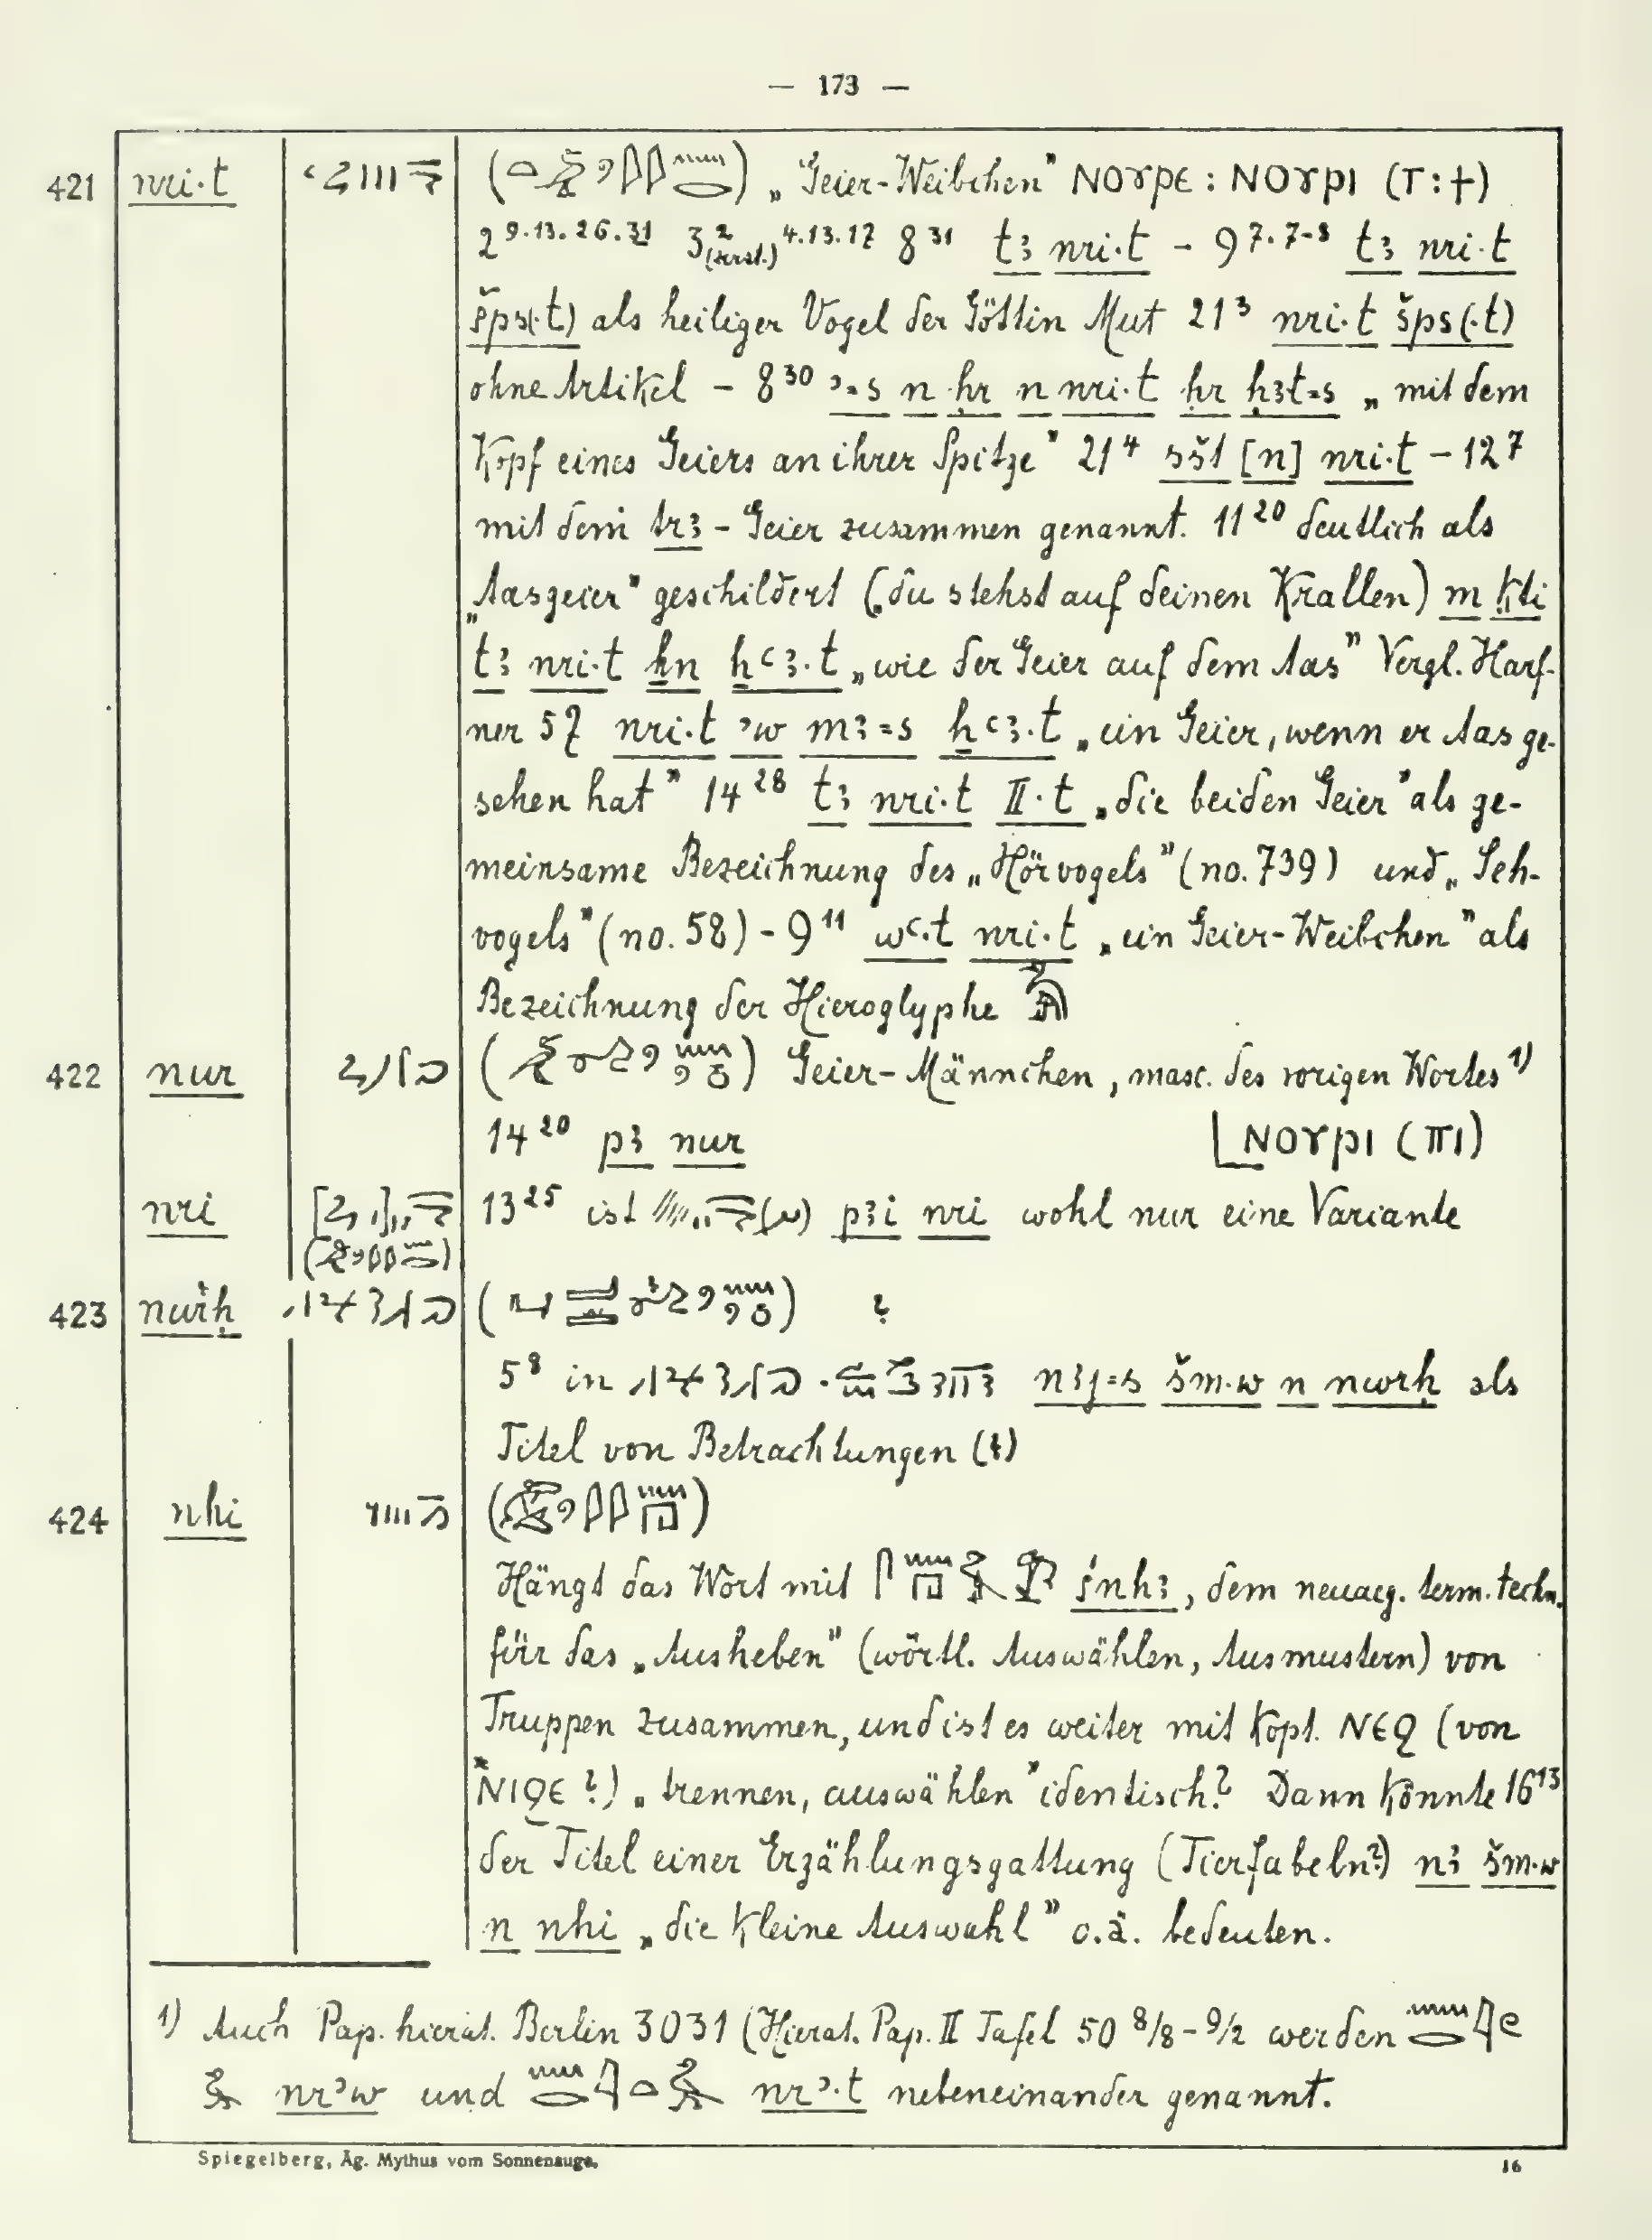 — 173 —
421 nri·t „Geier-Weibchen" ⲚⲞⲨⲢⲈ : ⲚⲞⲨⲢⲒ (Ⲧ:ϯ)
2 9.13.26.31 3 2 (zerst.) 4.13.17 8 31 tꜣ nri·t – 9 7.7-8 tꜣ nri·t
šps(·t) als heiliger Vogel der Göttin Mut 21 3 nri·t šps(·t)
ohne Artikel – 8 30 ꜥ=s n ḥr n nri·t ḥr ḥꜣt=s „mit dem
Kopf eines Geiers an ihrer Spitze" 21 4 sšt [n] nri·t – 12 7
mit dem trꜣ – Geier zusammen genannt. 11 20 deutlich als
„Aasgeier" geschildert („du stehst auf deinen Krallen) m ḳti
tꜣ nri·t ẖn ẖꜥꜣ·t „wie der Geier auf dem Aas" Vergl. Harf-
ner 57 nri·t ꜥw mꜣ=s ẖꜥꜣ·t „ein Geier, wenn er Aas ge-
sehen hat" 14 28 tꜣ nri·t II·t „die beiden Geier" als ge-
meinsame Bezeichnung des „Hörvogels" (no. 739) und „Seh-
vogels" (no. 58) – 9 11 wꜥ·t nri·t „ein Geier-Weibchen" als
Bezeichnung der Hieroglyphe
422 nur Geier-Männchen, masc. des vorigen Wortes 1)
14 20 pꜣ nur ⲚⲞⲨⲢⲒ (ⲠⲒ)
nri 13 25 ist pꜣi nri wohl nur eine Variante
423 nwrḥ ?
5 8 in nꜣy=s šm·w n nwrḥ als
Titel von Betrachtungen (?)
424 nhi
Hängt das Wort mit śnhꜣ, dem neuaeg. term. techn.
für das „Ausheben" (wörtl. Auswählen, Ausmustern) von
Truppen zusammen, und ist es weiter mit kopt. ⲚⲈϨ (von
*ⲚⲒϨⲈ ?) „trennen, auswählen" identisch? Dann könnte 16 13
der Titel einer Erzählungsgattung (Tierfabeln?) nꜣ šm·w
n nhi „die kleine Auswahl" o.ä. bedeuten.
1) Auch Pap. hierat. Berlin 3031 (Hierat. Pap. II Tafel 50 8/8 – 9/2 werden
nrꜥw und nrꜥ·t nebeneinander genannt.
Spiegelberg, Äg. Mythus vom Sonnenauge. 16